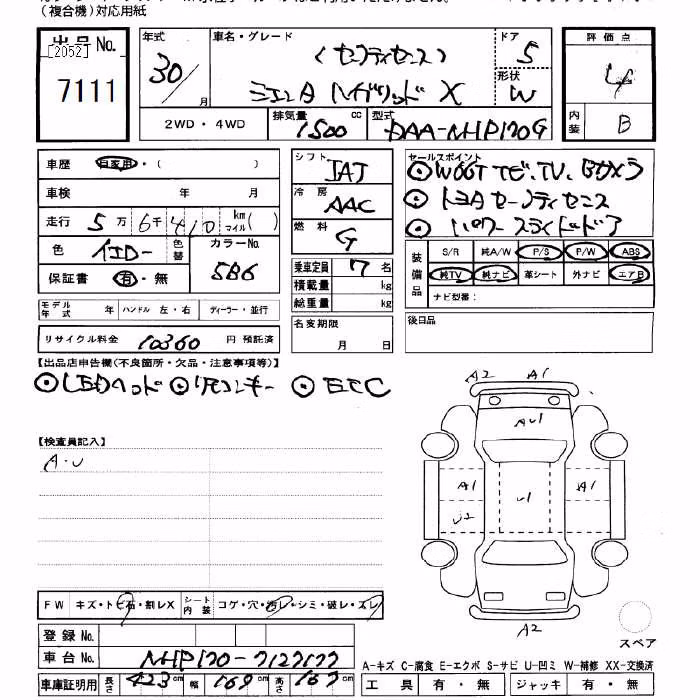 (複合機)対応用紙
出品No.
[2052]
7111
年式 30/ 月
車名・グレード (セーフティセンス)
シエンタ ハイブリッド X
ドア 5
形状 W
評価点 4
内装 B
2WD・4WD
排気量 1500 cc
型式 DAA-NHP170G
車歴 自家用・( )
車検 年 月
走行 5万 6千 410 km マイル( )
色 イエロー 色替 カラーNo. 5B6
保証書 有・無
モデル年式 年 ハンドル 左・右 ディーラー・並行
リサイクル料金 10360 円 預託済
シフト IAT
冷房 AAC
燃料 G
乗車定員 7 名
積載量 kg
総重量 kg
名変期限 月 日
セールスポイント
◎W66T ナビ、TV、Bカメラ
◎トヨタセーフティセンス
◎パワースライドドア
装備品
S/R 純A/W P/S P/W ABS
純TV 純ナビ 革シート 外ナビ エアB
ナビ型番:
後日品
【出品店申告欄(不良箇所・欠品・注意事項等)】
◎LEDヘッド ◎リモコンキー ◎ETC
【検査員記入】
A・U
A2 A1
AU1
A1 U1 A1
U2
A2
スペア
FW キズ・トビ石・割レX シート内装 コゲ・穴・汚レ・シミ・破レ・スレ
登録No.
車台No. NHP170-7127177
車庫証明用 長さ 423 cm 幅 169 cm 高さ 167 cm
A-キズ C-腐食 E-エクボ S-サビ U-凹ミ W-補修 XX-交換済
工具 有・無 ジャッキ 有・無